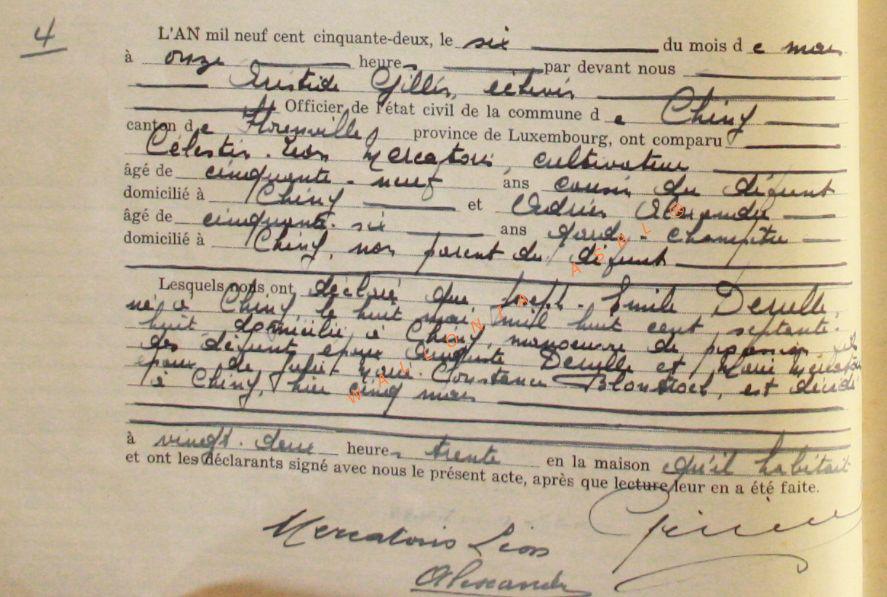 4
L'AN mil neuf cent cinquante-deux, le six du mois de mars
à onze heures par devant nous
Aristide Gillès, échevin
Officier de l'état civil de la commune de Chiny
canton de Florenville, province de Luxembourg, ont comparu
Célestin-Léon Mercatoris, cultivateur
âgé de cinquante-neuf ans cousin du défunt
domicilié à Chiny et Alexandre
âgé de cinquante-six ans garde-champêtre
domicilié à Chiny, non parent du défunt
Lesquels nous ont déclaré que Joseph-Emile Deruelle,
né à Chiny le huit mai mil huit cent septante-
huit domicilié à Chiny, manoeuvre de profession, fils
des défunts époux Auguste Deruelle et Marie Mercatoris
époux de Marie-Constance, est décédé
à Chiny, hier cinq mars
à vingt-deux heures trente en la maison qu'il habitait
et ont les déclarants signé avec nous le présent acte, après que lecture leur en a été faite.
Mercatoris Léon
Alexandre
WALLONIA ASBL